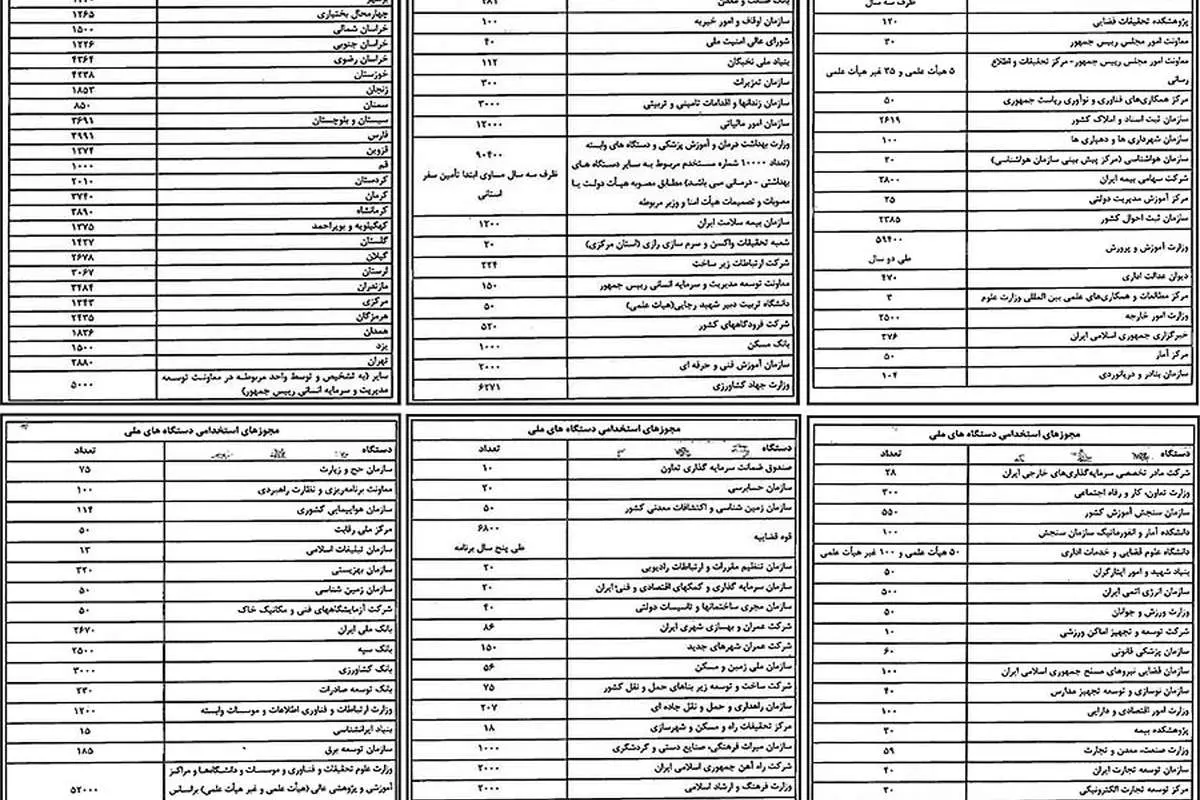 ظرف سه سال
پژوهشکده تحقیقات فضایی ۱۲۰
معاونت امور مجلس رییس جمهور ۳۰
معاونت امور مجلس رییس جمهور- مرکز تحقیقات و اطلاع رسانی ۵ هیأت علمی و ۳۵ غیر هیأت علمی
مرکز همکاری‌های فناوری و نوآوری ریاست جمهوری ۵۰
سازمان ثبت اسناد و املاک کشور ۲۶۱۹
سازمان شهرداری ها و دهیاری ها ۱۰۰
سازمان هواشناسی (مرکز پیش بینی سازمان هواشناسی) ۲۰
شرکت سهامی بیمه ایران ۳۸۰۰
مرکز آموزش مدیریت دولتی ۲۵
سازمان ثبت احوال کشور ۲۳۸۵
وزارت آموزش و پرورش ۵۹۴۰۰
طی دو سال
دیوان عدالت اداری ۴۷۰
مرکز مطالعات و همکاری‌های علمی بین المللی وزارت علوم ۳
وزارت امور خارجه ۲۵۰۰
خبرگزاری جمهوری اسلامی ایران ۲۷۶
مرکز آمار ۵۰
سازمان بنادر و دریانوردی ۱۰۴
بانک صنعت و معدن
سازمان اوقاف و امور خیریه ۱۰۰
شورای عالی امنیت ملی ۴۰
بنیاد ملی نخبگان ۱۱۲
سازمان تعزیرات ۳۰۰
سازمان زندانها و اقدامات تامینی و تربیتی ۳۰۰۰
سازمان امور مالیاتی ۱۲۰۰۰
وزارت بهداشت درمان و آموزش پزشکی و دستگاه های وابسته
(تعداد ۱۰۰۰۰ شماره مستخدم مربوط به سایر دستگاه های
بهداشتی - درمانی می باشد) مطابق مصوبه هیأت دولت یا
مصوبات و تصمیمات هیأت امنا و وزیر مربوطه
۹۰۴۰۰
ظرف سه سال مساوی ابتدا تأمین سفر
استانی
سازمان بیمه سلامت ایران ۱۲۰۰
شعبه تحقیقات واکسن و سرم سازی رازی (استان مرکزی) ۲۰
شرکت ارتباطات زیر ساخت ۲۲۴
معاونت توسعه مدیریت و سرمایه انسانی رییس جمهور ۱۵۰
دانشگاه تربیت دبیر شهید رجایی(هیات علمی) ۵۰
شرکت فرودگاههای کشور ۵۲۰
بانک مسکن ۱۰۰۰
سازمان آموزش فنی و حرفه ای ۲۰۰۰
وزارت جهاد کشاورزی ۶۲۷۱
چهارمحال بختیاری ۱۲۶۵
خراسان شمالی ۱۵۰۰
خراسان جنوبی ۱۲۲۶
خراسان رضوی ۴۳۶۴
خوزستان ۴۲۳۸
زنجان ۱۸۵۳
سمنان ۸۵۰
سیستان و بلوچستان ۳۶۹۱
فارس ۳۹۹۱
قزوین ۱۲۷۴
قم ۱۰۰۰
کردستان ۲۰۱۰
کرمان ۳۷۴۰
کرمانشاه ۳۸۹۰
کهگیلویه و بویراحمد ۱۳۷۵
گلستان ۱۴۳۷
گیلان ۲۶۷۸
لرستان ۳۰۶۷
مازندران ۳۴۸۴
مرکزی ۱۳۴۳
هرمزگان ۲۴۳۵
همدان ۱۸۳۶
یزد ۱۵۰۰
تهران ۲۸۸۰
سایر (به تشخیص و توسط واحد مربوطه در معاونت توسعه
مدیریت و سرمایه انسانی رییس جمهور) ۵۰۰۰
مجوزهای استخدامی دستگاه های ملی
دستگاه تعداد
شرکت مادر تخصصی سرمایه‌گذاری‌های خارجی ایران ۲۸
وزارت تعاون، کار و رفاه اجتماعی ۳۰۰
سازمان سنجش آموزش کشور ۵۵۰
دانشکده آمار و انفورماتیک سازمان سنجش ۱۰۰
دانشگاه علوم قضایی و خدمات اداری ۵۰ هیأت علمی و ۱۰۰ غیر هیأت علمی
بنیاد شهید و امور ایثارگران ۵۰
سازمان انرژی اتمی ایران ۵۰۰
وزارت ورزش و جوانان ۵۰
شرکت توسعه و تجهیز اماکن ورزشی ۱۰
سازمان پزشکی قانونی ۶۰
سازمان قضایی نیروهای مسلح جمهوری اسلامی ایران ۱۰۰
سازمان نوسازی و توسعه تجهیز مدارس ۴۰
وزارت امور اقتصادی و دارایی ۱۰۰
پژوهشکده بیمه ۳۰
وزارت صنعت، معدن و تجارت ۵۹
سازمان توسعه تجارت ایران ۲۰
مرکز توسعه تجارت الکترونیکی ۳۰
مجوزهای استخدامی دستگاه های ملی
دستگاه تعداد
صندوق ضمانت سرمایه گذاری تعاون ۱۰
سازمان حسابرسی ۲۰
سازمان زمین شناسی و اکتشافات معدنی کشور ۵۰
قوه قضاییه ۶۸۰۰
طی پنج سال برنامه
سازمان تنظیم مقررات و ارتباطات رادیویی ۲۰
سازمان سرمایه گذاری و کمکهای اقتصادی و فنی ایران ۲۰
سازمان مجری ساختمانها و تاسیسات دولتی ۴۰
شرکت عمران و بهسازی شهری ایران ۸۶
شرکت عمران شهرهای جدید ۱۵۰
سازمان ملی زمین و مسکن ۵۶
شرکت ساخت و توسعه زیر بناهای حمل و نقل کشور ۷۵
سازمان راهداری و حمل و نقل جاده ای ۲۰۷
مرکز تحقیقات راه و مسکن و شهرسازی ۱۸
سازمان میراث فرهنگی، صنایع دستی و گردشگری ۱۰۰۰
شرکت راه آهن جمهوری اسلامی ایران ۲۰۰۰
وزارت فرهنگ و ارشاد اسلامی ۲۰۰۰
مجوزهای استخدامی دستگاه های ملی
دستگاه تعداد
سازمان حج و زیارت ۷۵
معاونت برنامه‌ریزی و نظارت راهبردی ۱۰۰
سازمان هواپیمایی کشوری ۱۱۴
مرکز ملی رقابت ۵۰
سازمان تبلیغات اسلامی ۱۳
سازمان بهزیستی ۳۲۰
سازمان زمین شناسی ۵۰
شرکت آزمایشگاههای فنی و مکانیک خاک ۵۰
بانک ملی ایران ۲۶۷۰
بانک سپه ۲۵۰۰
بانک کشاورزی ۳۰۰۰
بانک توسعه صادرات ۲۳۰
وزارت ارتباطات و فناوری اطلاعات و موسسات وابسته ۱۲۰۰
بنیاد ایرانشناسی ۱۵
سازمان توسعه برق ۱۸۵
وزارت علوم تحقیقات و فناوری و موسسات و دانشگاه‌ها و مراکز
آموزشی و پژوهشی عالی (هیأت علمی و غیر هیأت علمی) براساس ۵۲۰۰۰